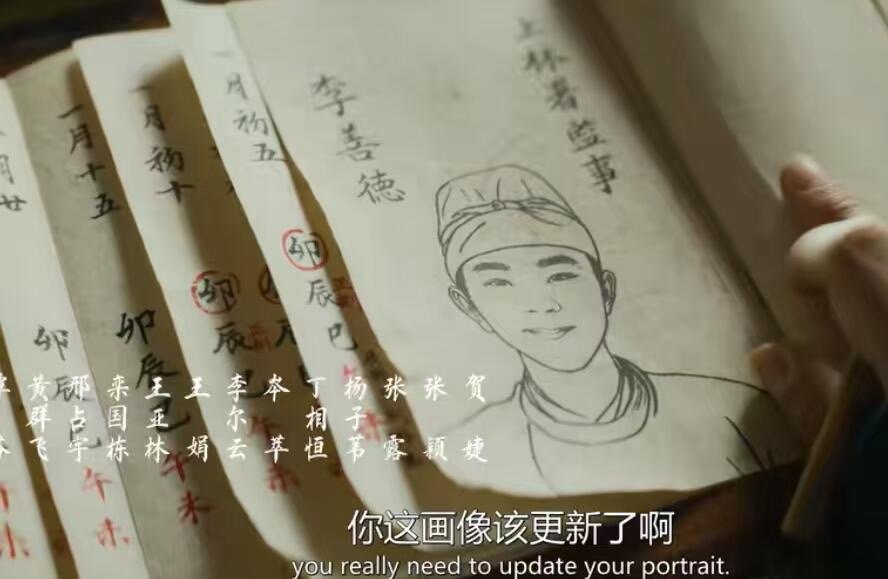 上林署監事
李善德
一月初五
卯辰巳午未
一月初十
卯辰巳午未
一月十五
卯辰巳午未
月廿
卯辰巳午未
黄 邢 栾 王 王 李 岑 丁 杨 张 张 贺
群 占 国 亚 尔 相 子
飞 宇 栋 林 娟 云 萃 恒 苇 露 颖 婕
你这画像该更新了啊
you really need to update your portrait.